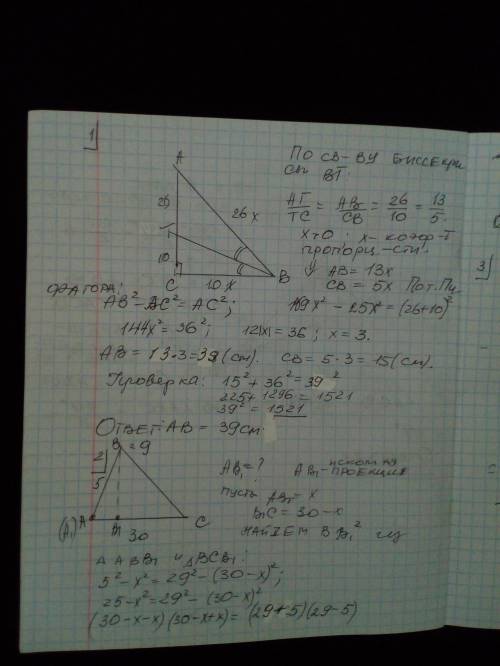 1
A
26
26x
T
10
C
10x
B
По св-ву биссектри
сы BT:
AT/TC = AB/CB = 26/10 = 13/5.
x>0; x- коэф-т
пропорц-сти
AB = 13x
CB = 5x По т. Пи
фагора:
AB² - BC² = AC²;
169x² - 25x² = (26+10)²
144x² = 36²; 12|x| = 36; x = 3.
AB = 13·3 = 39 (см). CB = 5·3 = 15 (см).
Проверка: 15² + 36² = 39²
225 + 1296 = 1521
39² = 1521
Ответ: AB = 39 см.
2
B
29
5
(A₁) A
B₁
C
30
AB₁ = ? AB₁ - искомая
проекция
Пусть AB₁ = x
B₁C = 30 - x
Найдём BB₁² из
Δ ABB₁ и ΔBCB₁:
5² - x² = 29² - (30-x)²;
25 - x² = 29² - (30-x)²
(30-x-x)(30-x+x) = (29+5)(29-5)
3